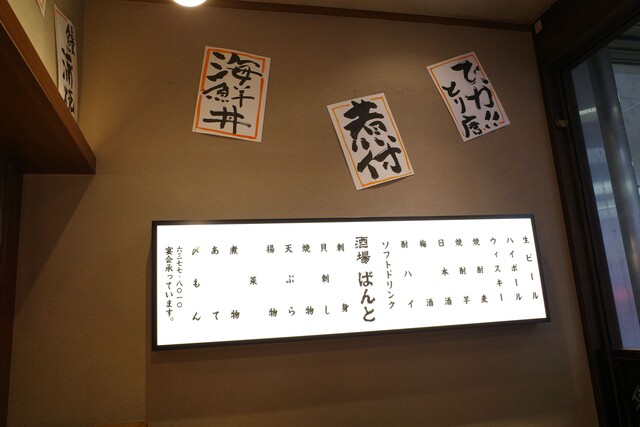 海鮮丼
煮付
とり唐
生ビール
ハイボール
ウィスキー
焼酎麦
焼酎芋
日本酒
梅酒
酎ハイ
ソフトドリンク
酒場 ばんと
刺身
貝刺し
焼物
天ぷら
揚物
菜
煮物
あて
〆もん
六三七七-八〇一〇
宴会承っています。